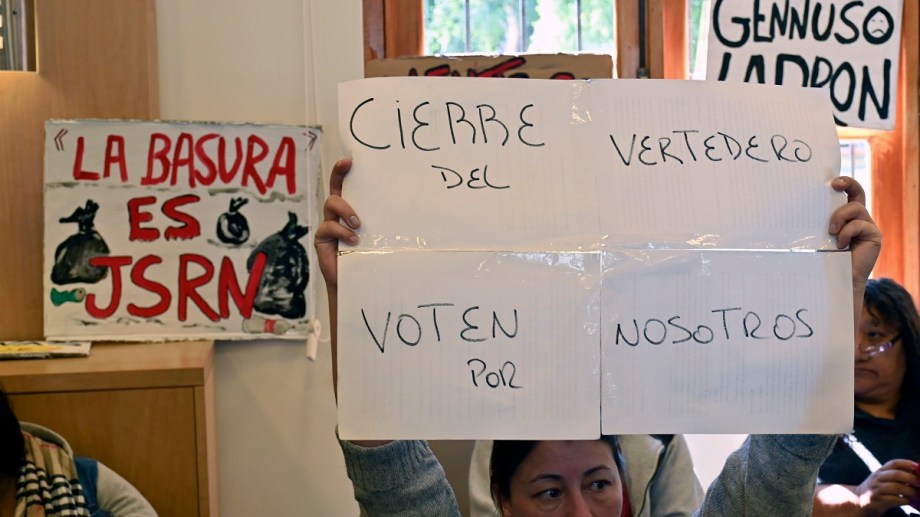 "LA BASURA
ES
JSRN
CIERRE
DEL
VERTEDERO
VOTEN
POR
NOSOTROS
GENNUSO
LADRON